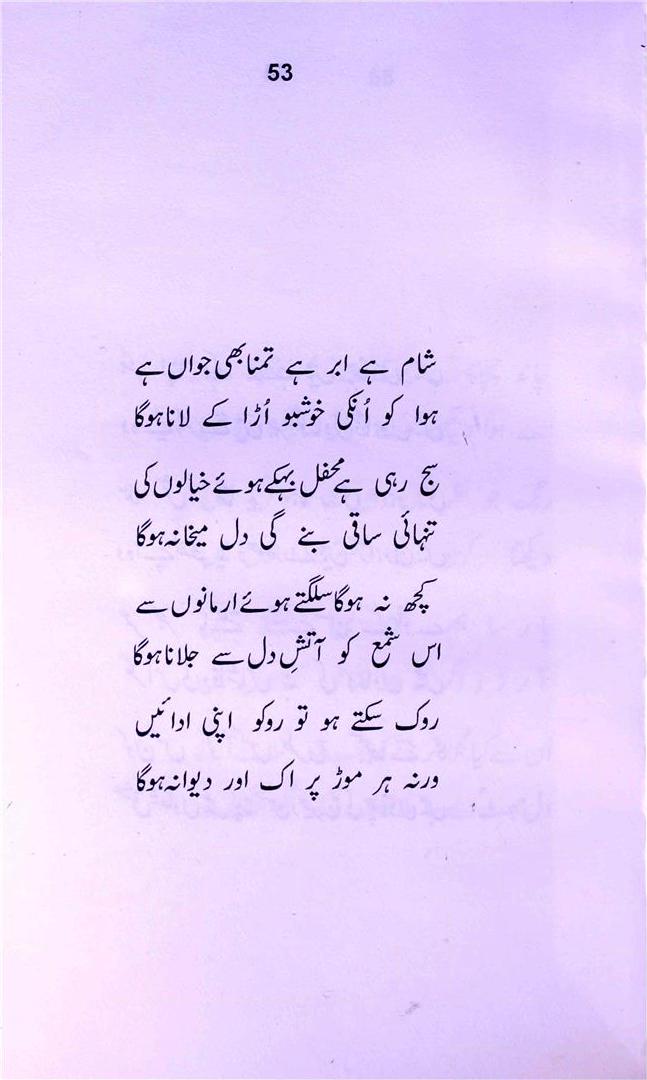 53
شام ہے ابر ہے تمنا بھی جواں ہے
ہوا کو اُنکی خوشبو اُڑا کے لانا ہوگا
سج رہی ہے محفل بہکے ہوئے خیالوں کی
تنہائی ساقی بنے گی دل میخانہ ہوگا
کچھ نہ ہوگا سلگتے ہوئے ارمانوں سے
اس شمع کو آتشِ دل سے جلانا ہوگا
روک سکتے ہو تو روکو اپنی ادائیں
ورنہ ہر موڑ پر اک اور دیوانہ ہوگا